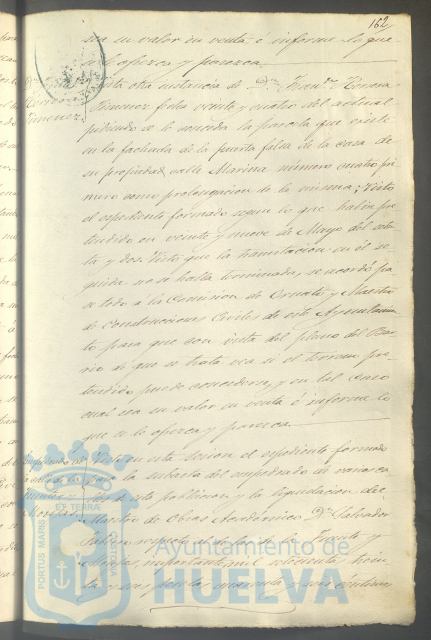 162
sea su valor en venta, é informe lo que
se le ofrezca y parezca.
Vista otra instancia de D.n Fran.co
Jimenez fecha veinte y cuatro del actual
pidiendo se le conceda la parcela que existe
en la fachada de la puerta falsa de la casa de
su propiedad calle Marina número cuatro pri-
mero como prolongacion de la misma; Visto
el espediente formado segun lo que habia pre-
tendido en veinte y nueve de Mayo del
ta y dos Visto que la tramitacion en él se-
guida no se halla terminada, se acordó pa-
se todo á la Comision de Ornato y Maestro
de Construcciones Civiles de este Ayuntamien-
to para que con vista del plano del Bar-
rio de que se trata vea si el terreno pre-
tendido puede concederse, y en tal caso
cual sea su valor en venta é informe lo
que se le ofrezca y parezca.
Visto en esta sesion el espediente formado
para la subasta del empedrado de varias ca-
lles de esta poblacion y la liquidacion del
Maestro de Obras Académico D.n Salvador
respecto de la de la Fuente y
importante mil
ta y
Jimenez
PORTUS MARIS
ET TERRAE
CUSTODIA
Ayuntamiento de
HUELVA